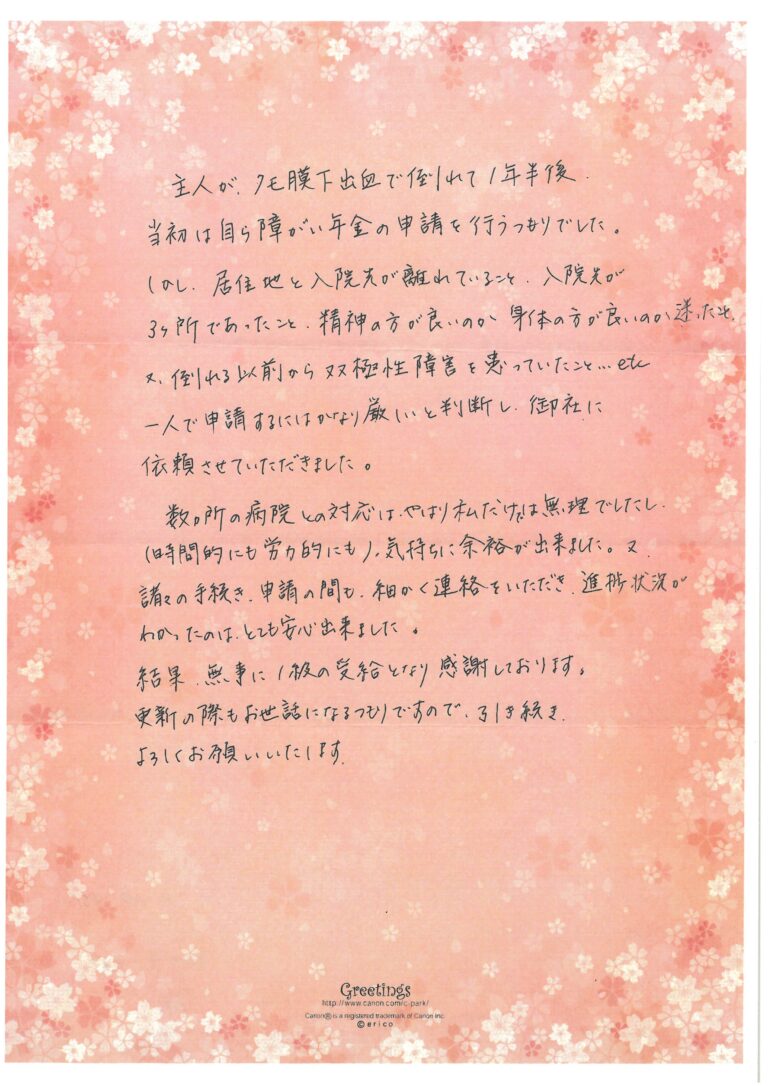 主人が、クモ膜下出血で倒れて1年半後、
当初は自ら障がい年金の申請を行うつもりでした。
しかし、居住地と入院先が離れていること、入院先が
3ヶ所であったこと、精神の方が良いのか身体の方が良いのか迷ったこと、
又、倒れる以前から双極性障害を患っていたこと…etc
一人で申請するにはかなり厳しいと判断し、御社に
依頼させていただきました。
数ヶ所の病院との対応は、やはり私だけでは無理でしたし、
(時間的にも労力的にも)、気持ちに余裕が出来ました。又、
諸々の手続き、申請の間も、細かく連絡をいただき、進捗状況が
わかったのは、とても安心出来ました。
結果、無事に1級の受給となり感謝しております。
更新の際もお世話になるつもりですので、引き続き、
よろしくお願いいたします。
Greetings
http://www.canon.com/c-park/
Canon® is a registered trademark of Canon Inc.
© erico